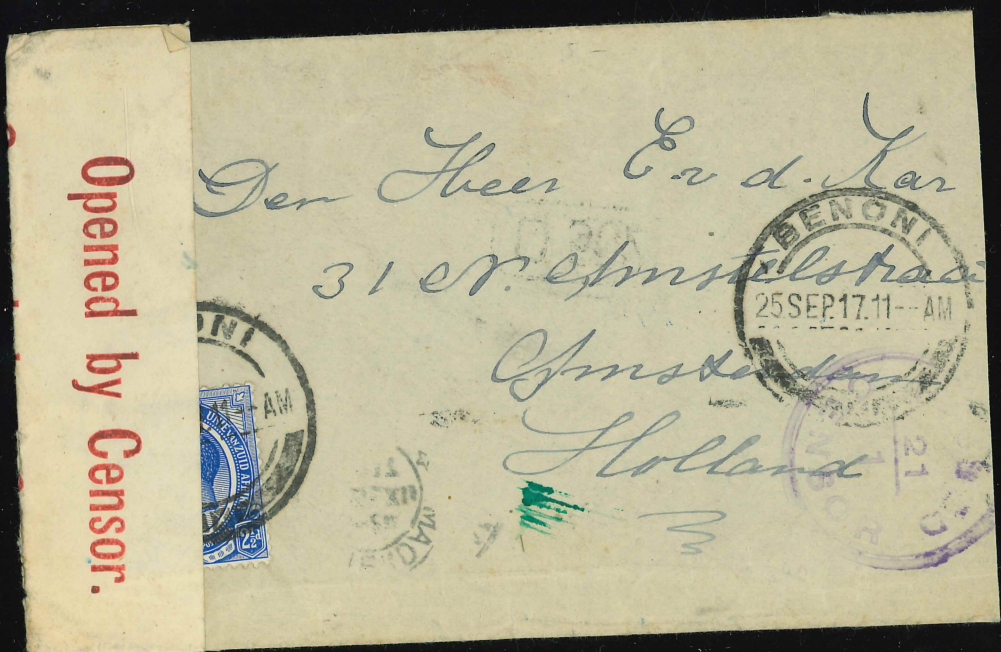 Opened by Censor.
Den Heer E. v. d. Kar
31 N. Amstelstraat
Amsterdam
Holland
BENONI
25 SEP. 17. 11-- AM
ONI
-AM
UNIE VAN ZUID AFR
2½d
21
1